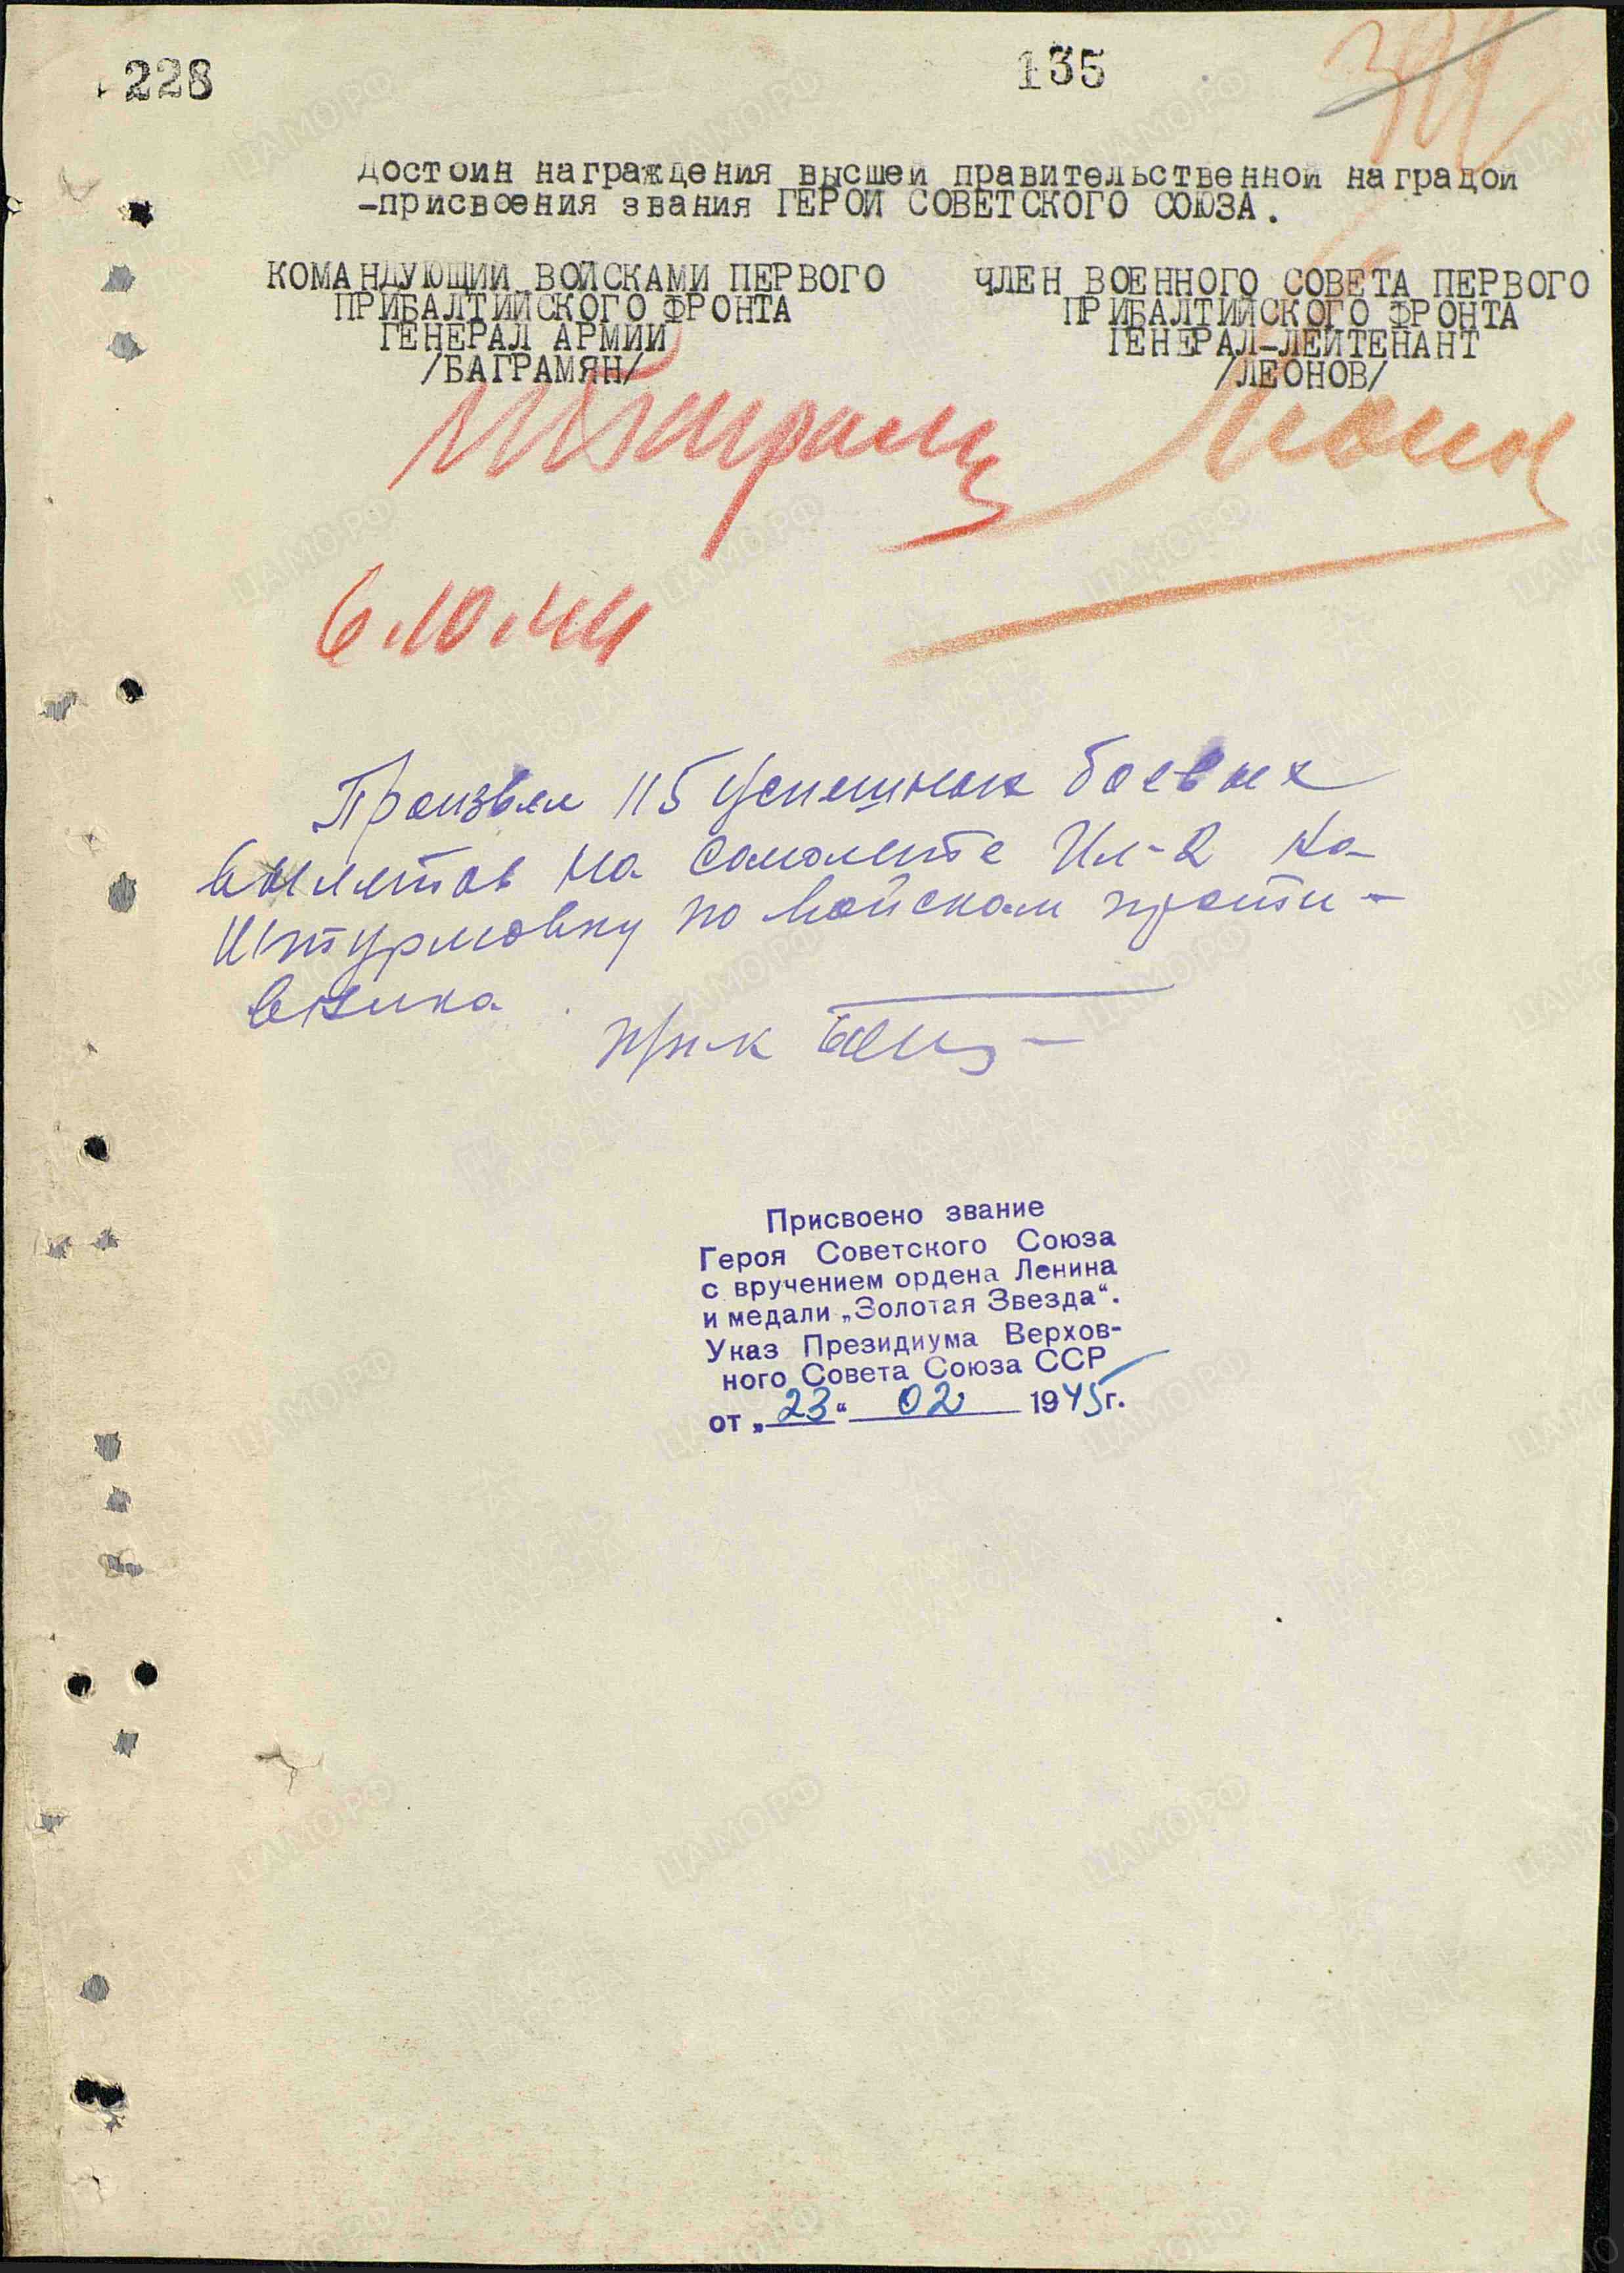 228
135
Достоин награждения высшей правительственной наградой
-присвоения звания ГЕРОЙ СОВЕТСКОГО СОЮЗА.
КОМАНДУЮЩИЙ ВОЙСКАМИ ПЕРВОГО
ПРИБАЛТИЙСКОГО ФРОНТА
ГЕНЕРАЛ АРМИИ
/БАГРАМЯН/
ЧЛЕН ВОЕННОГО СОВЕТА ПЕРВОГО
ПРИБАЛТИЙСКОГО ФРОНТА
ГЕНЕРАЛ-ЛЕЙТЕНАНТ
/ЛЕОНОВ/
6.10.44
Произвел 115 успешных боевых
вылетов на самолете Ил-2 на
штурмовку по войскам проти-
вника
Присвоено звание
Героя Советского Союза
с вручением ордена Ленина
и медали „Золотая Звезда“.
Указ Президиума Верхов-
ного Совета Союза ССР
от „23“ 02 1945г.
ЦАМО.РФ
ПАМЯТЬ
НАРОДА